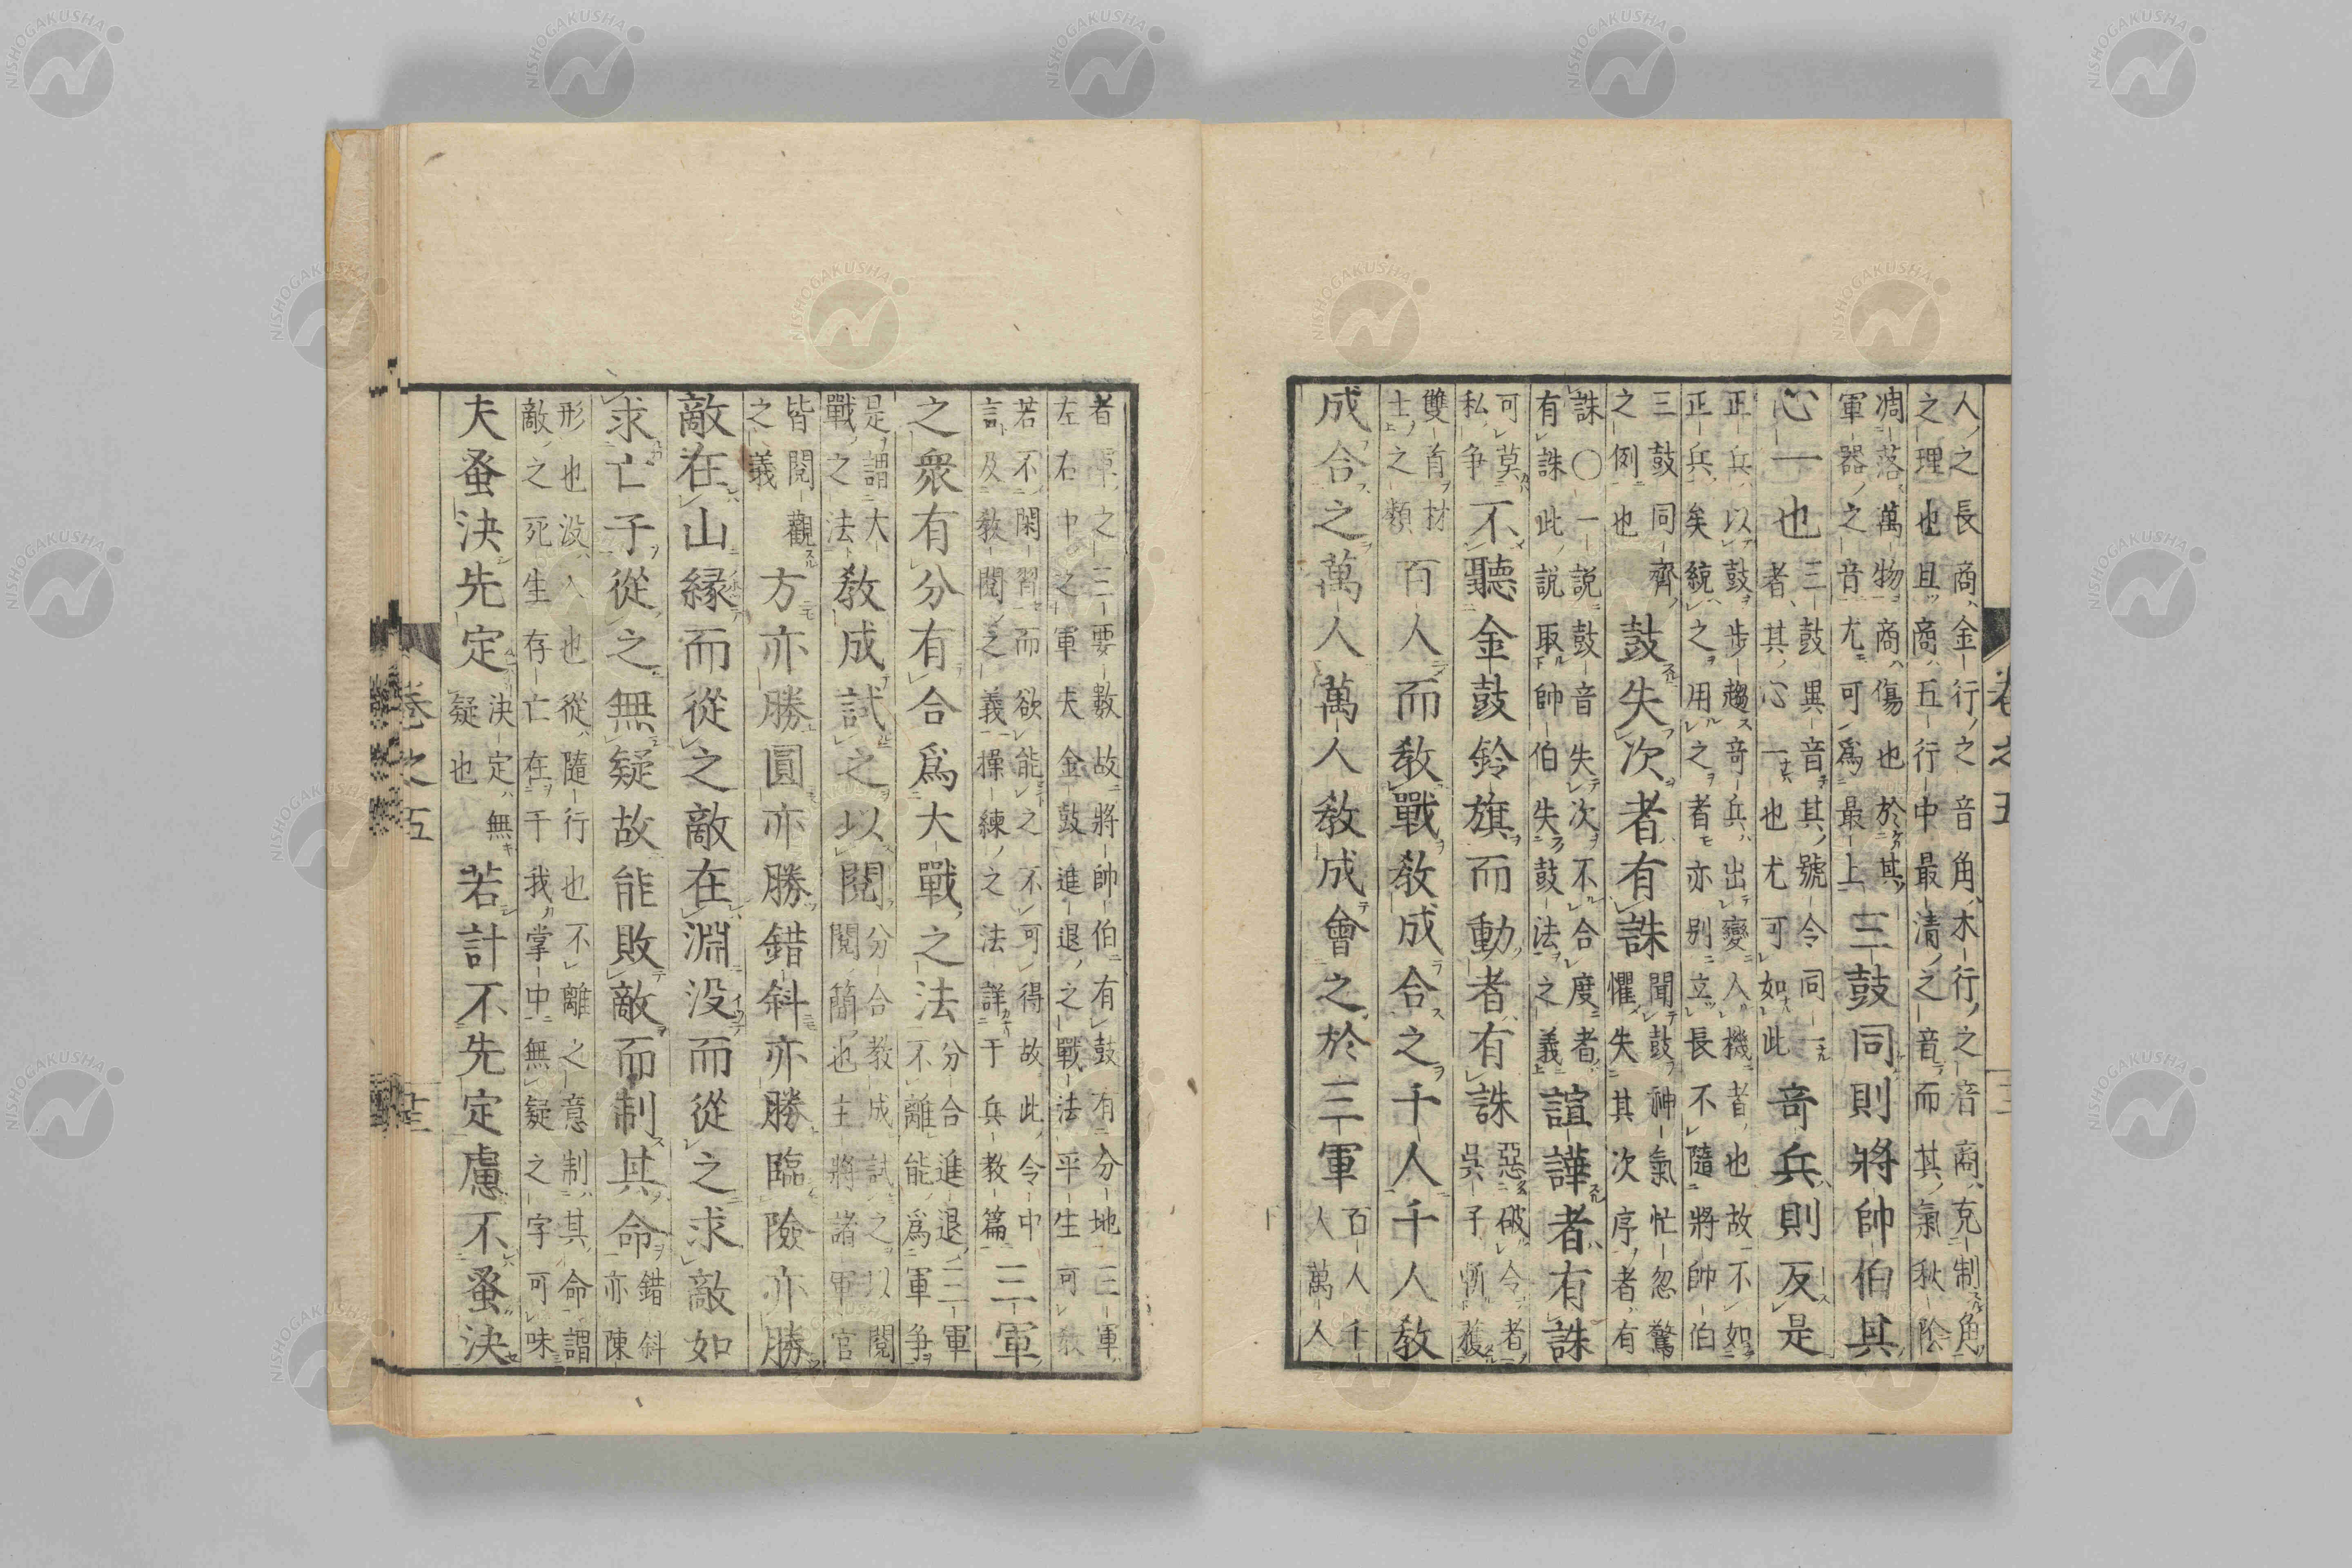 人之長商金行之音角木行之音商克制角
之理也且商五行中最清之音而其氣秋陰
凋落萬物商傷也於其
軍器之音尤可爲最上
三鼓同則將帥伯其
心一也
三鼓異音其號令同一
者其心一也尤可如此
奇兵則反是
正兵以鼓步趨奇兵出變入機者也故不如
正兵矣統之用之者亦別立長不隨將帥伯
三鼓同齊
之例也
鼓失次者有誅
聞鼓神氣忙忽驚
懼失其次序者有
誅〇一說鼓音失次不合度者
有誅此說取帥伯失鼓法之義
諠譁者有誅
可莫
私爭
不聽金鼓鈴旗而動者有誅
惡破令者
吳子斬獲
雙首材
士之類
百人而敎戰敎成合之千人千人敎
成合之萬人萬人敎成會之於三軍
百人千
人萬人
者軍之三要數故將帥伯有鼓有分地三軍
左右中之軍大金鼓進退之戰法平生可敎
若不閑習而欲能之不可得故此令中
言及敎閱之義操練之法詳于兵敎篇
三軍
之衆有分有合爲大戰之法
分合進退三軍
不離能爲軍爭
是謂大
戰之法
敎成試之以閱
分合敎成試之以閱
閱簡也主將諸軍官
皆閱觀
之義
方亦勝圓亦勝錯斜亦勝臨險亦勝
敵在山縁而從之敵在淵没而從之求敵如
求亡子從之無疑故能敗敵而制其命
錯斜
亦陳
形也没入也從隨行也不離之意制其命謂
敵之死生存亡在于我掌中無疑之字可味
夫蚤決先定
決定無
疑也
若計不先定慮不蚤決
卷之五
卷之五
NISHOGAKUSHA